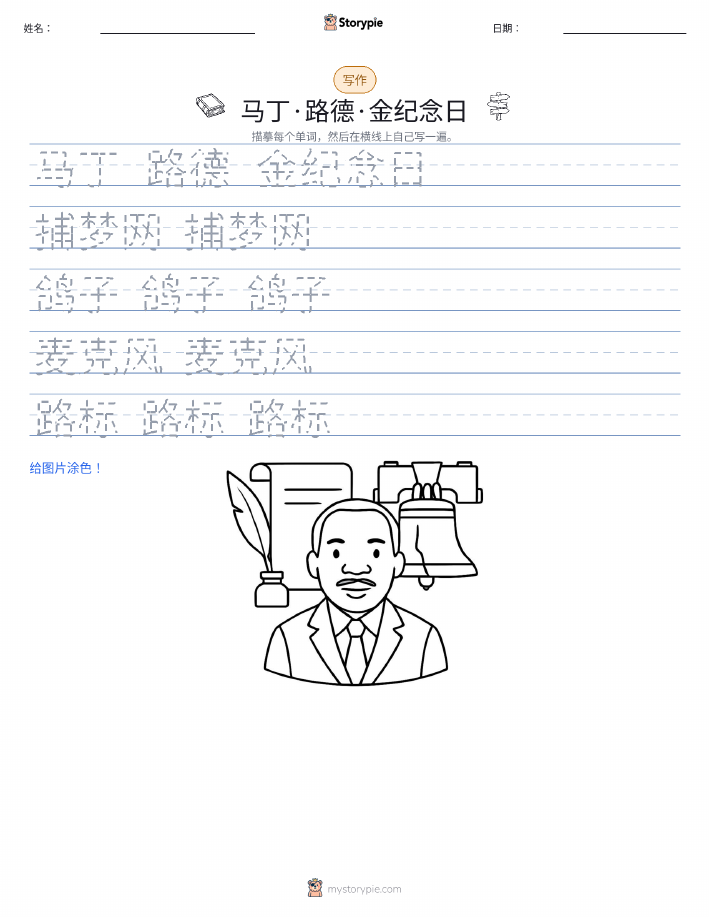 姓名：
Storypie
日期：
写作
马丁·路德·金纪念日
描摹每个单词，然后在横线上自己写一遍。
马丁 路德 金纪念日
捕梦网 捕梦网
鸽子 鸽子 鸽子
麦克风 麦克风
路标 路标 路标
给图片涂色！
mystorypie.com